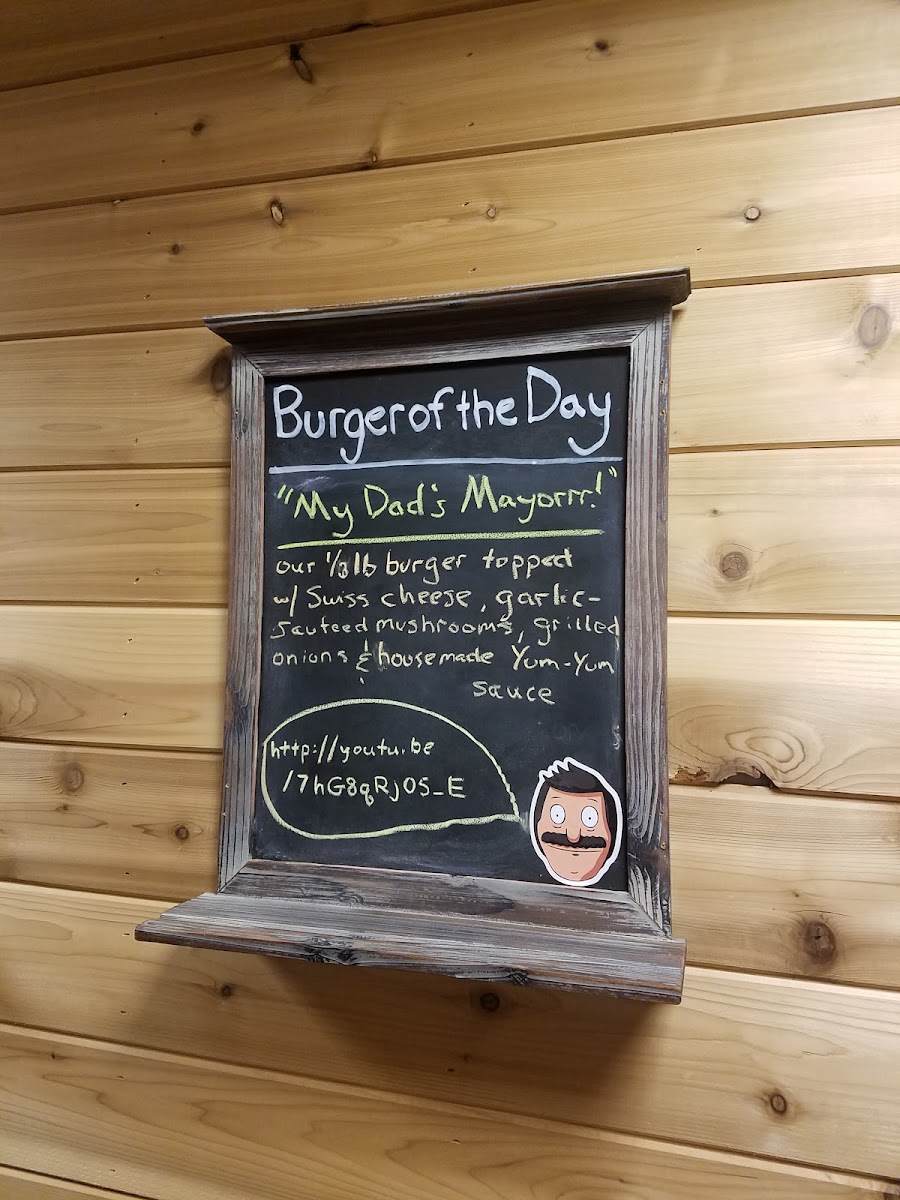 Burger of the Day
"My Dad's Mayorrr!"
our 1/3 lb burger topped
w/ Swiss cheese, garlic-
sauteed mushrooms, grilled
onions & housemade Yum-Yum
sauce
http://youtu.be
/7hG8qRj05_E